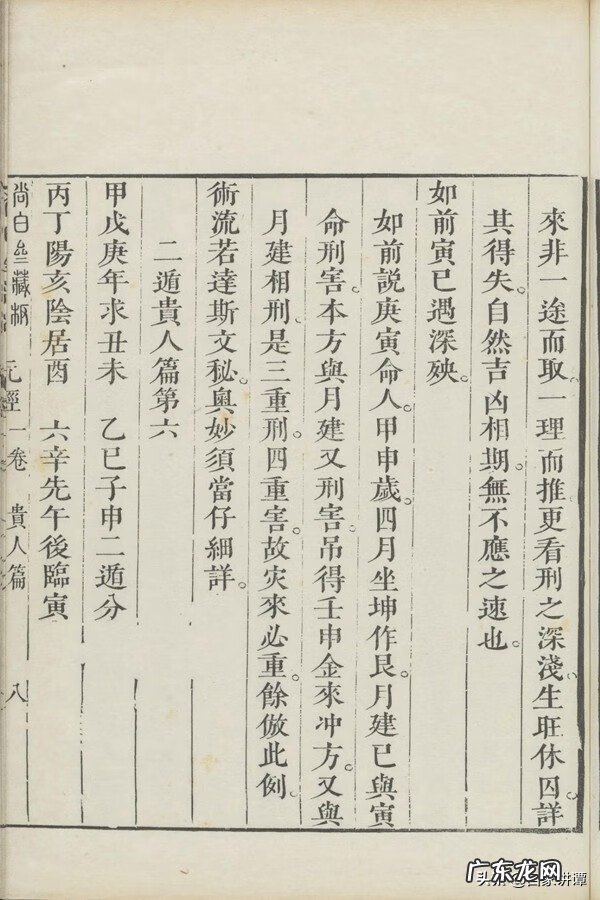 來非一途而取。一理而推更看刑之深淺。生旺休囚。詳
其得失。自然吉凶相期。無不應之速也。
如前寅巳遇深殃。
如前説庚寅命人。甲申歲。四月坐坤作艮。月建巳與寅
命刑害。本方與月建又刑害。吊得壬申金來冲方。又與
月建相刑。是三重刑。四重害。故灾來必重。餘倣此例。
術流若達斯文秘。奥妙須當仔細詳。
二遁貴人篇第六
甲戊庚年求丑未　乙巳子申二遁分
丙丁陽亥陰居酉　六辛先午後臨寅
尚白齋藏板　元經一卷　貴人篇　八
广东龙网